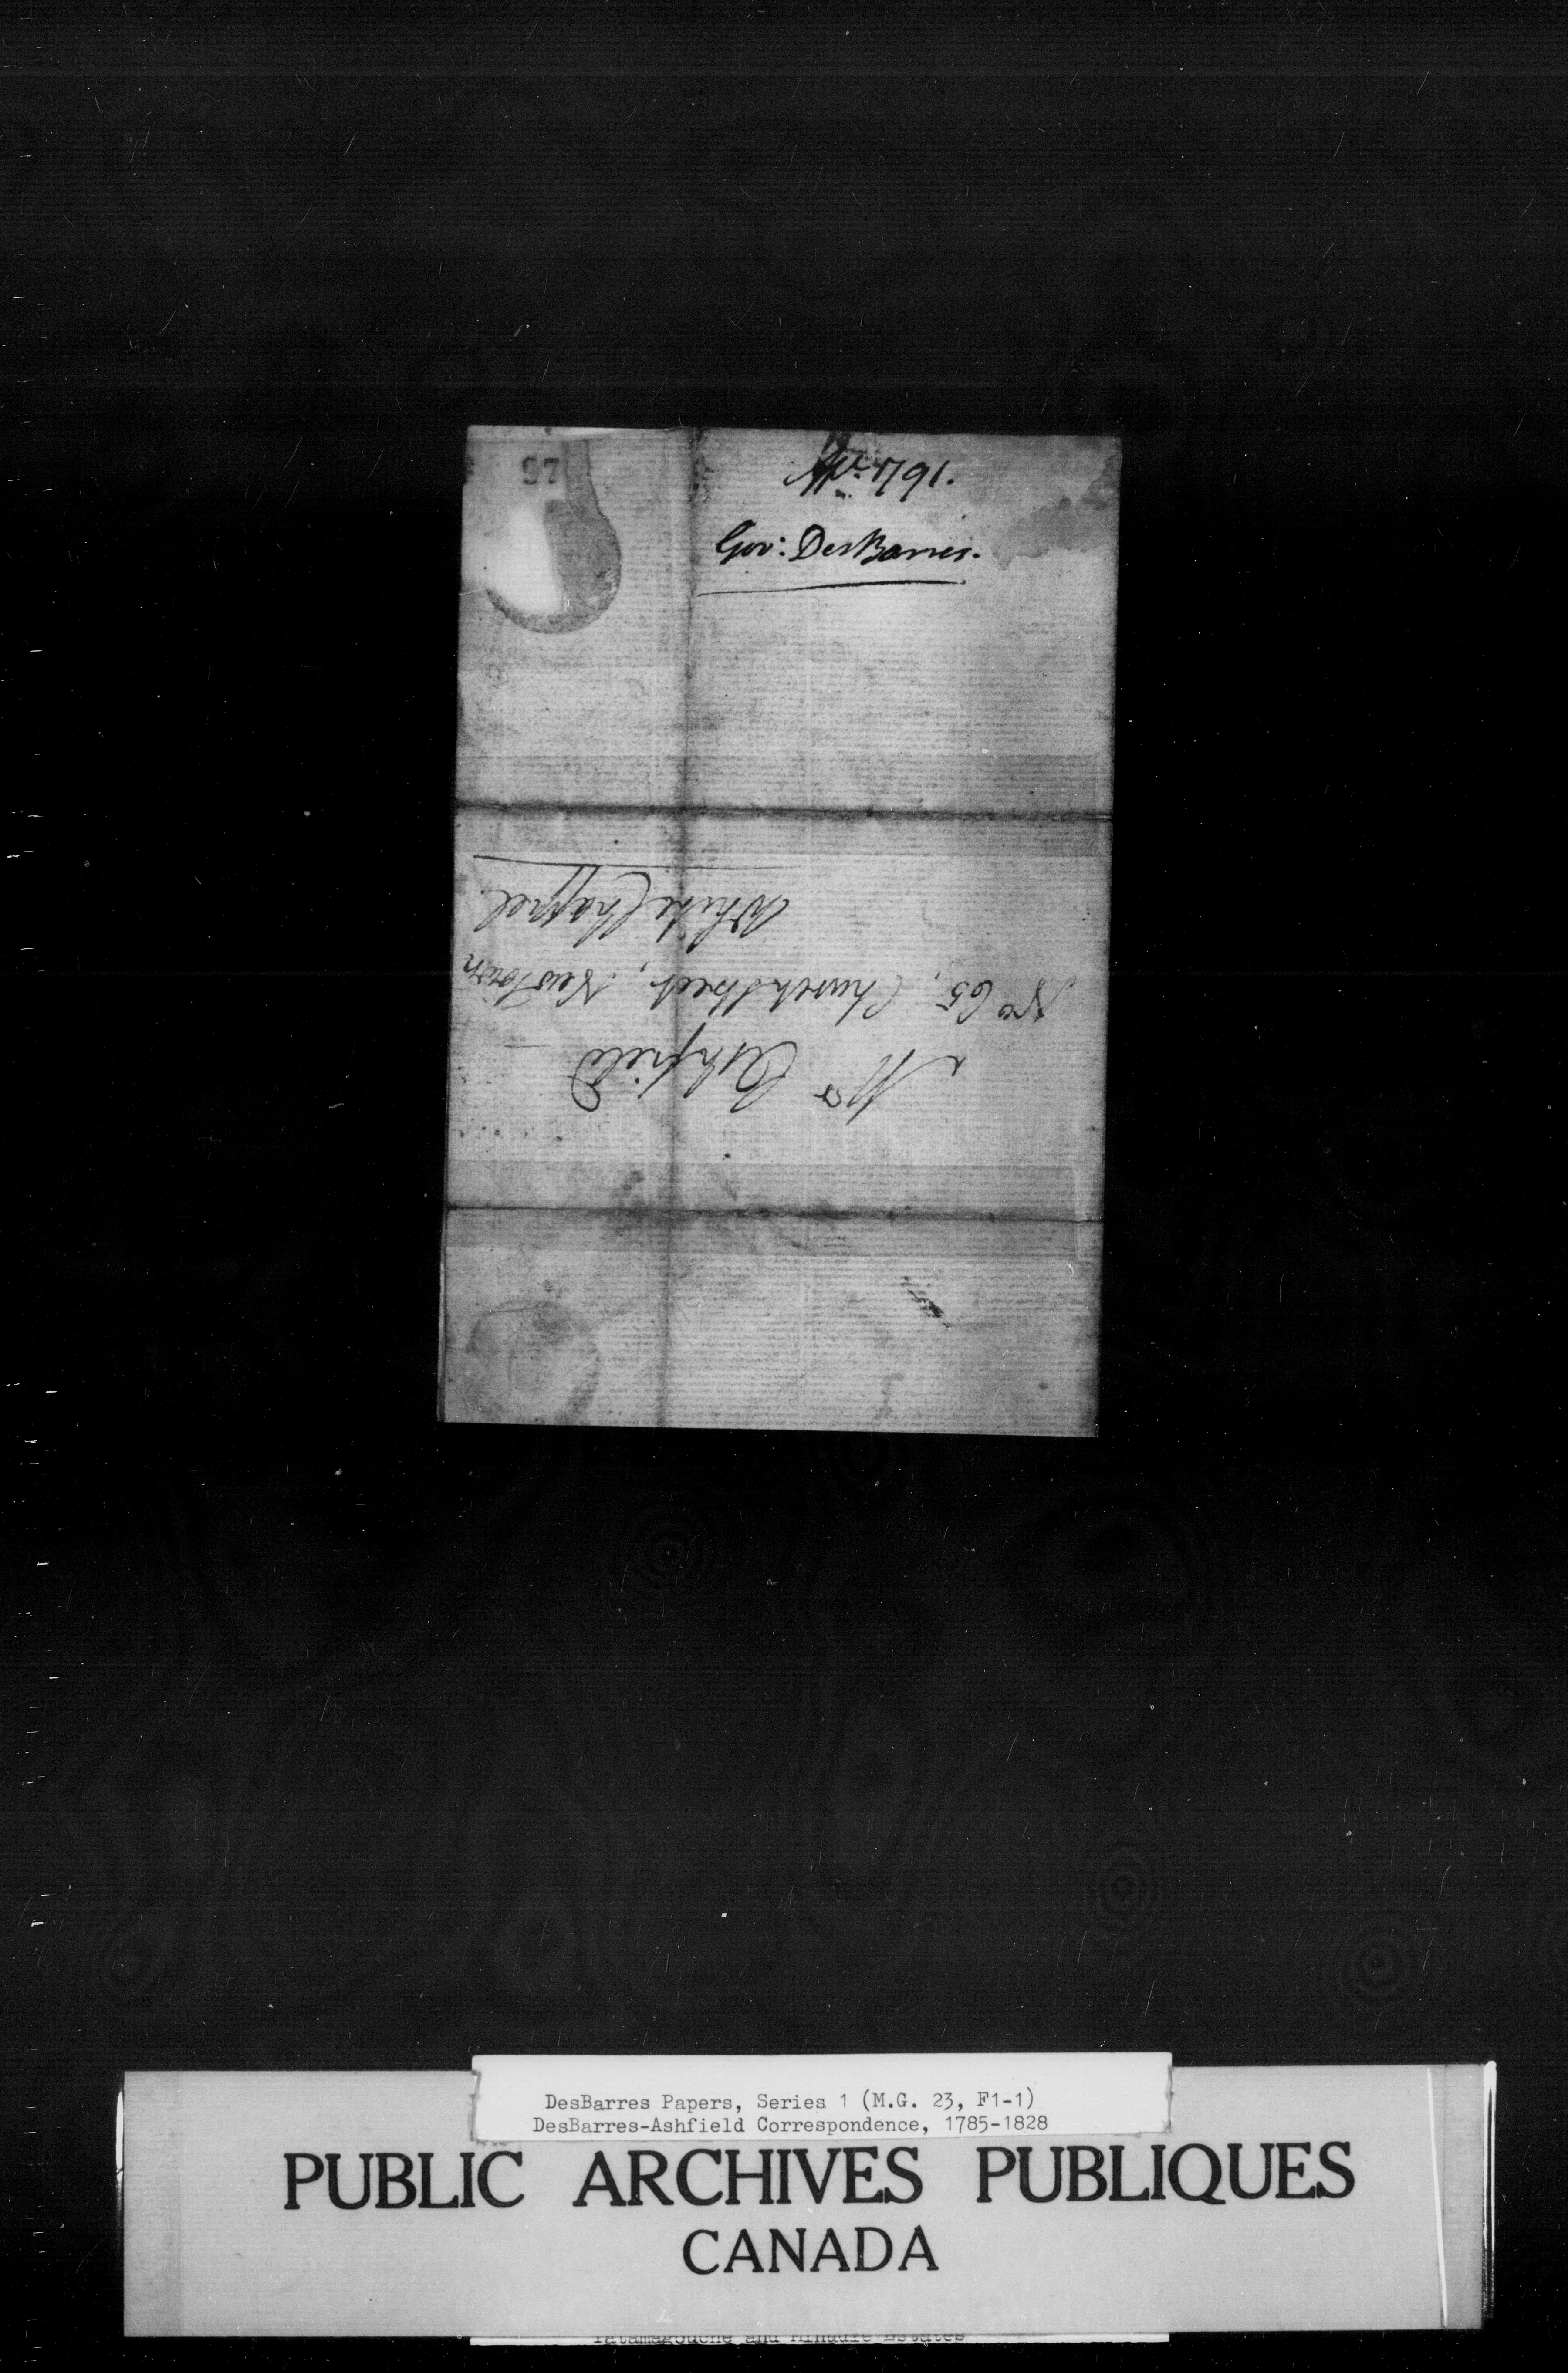 97
Apr: 1791.
Gov: DesBarres.
Mr Ashfield
No 65, Church Street, New Town
White Chappel
DesBarres Papers, Series 1 (M.G. 23, F1-1)
DesBarres-Ashfield Correspondence, 1785-1828
PUBLIC ARCHIVES PUBLIQUES
CANADA
Tatamagouche and Minudie Estates